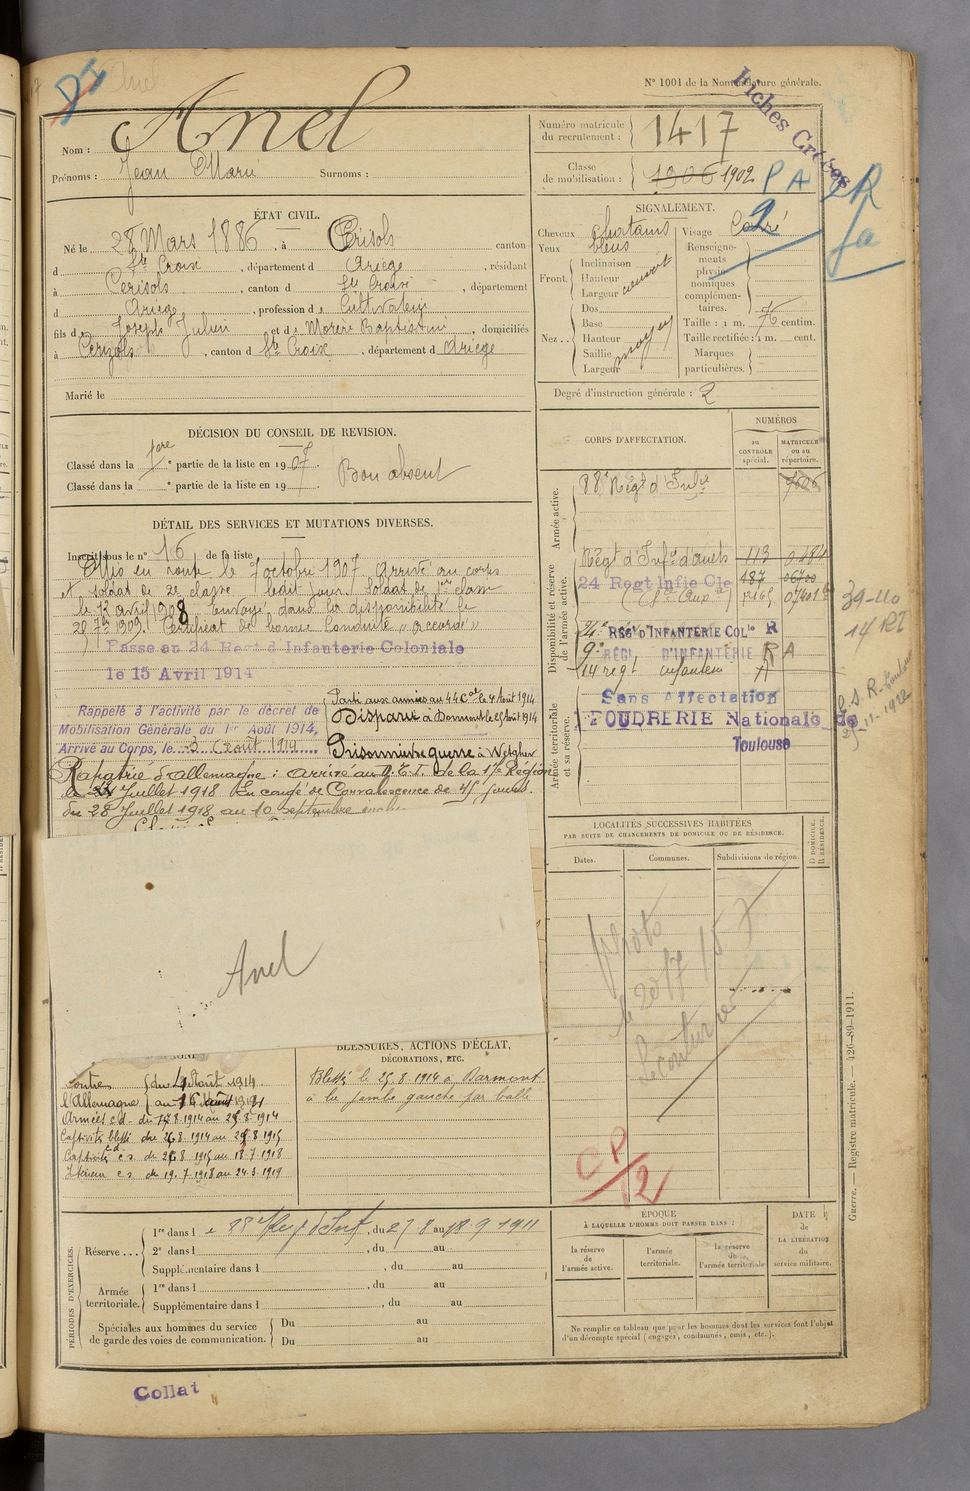 N° 1001 de la Nomenclature générale.
Fiches Creées
Nom : Anel
Prénoms : Jean Marie Surnoms :
Numéro matricule du recrutement : 1417
Classe de mobilisation : 1906 1902 P A
ÉTAT CIVIL.
Né le 28 Mars 1886, à Cérisols canton
d Ste Croix, département d Ariège, résidant
à Cerisols, canton d Ste Croix, département
d Ariège, profession de Cultivateur
fils de Joseph Julien et de Morere Baptistine, domiciliés
à Cerizols, canton d Ste Croix, département d Ariège
Marié le
SIGNALEMENT.
Cheveux chatains
Yeux bleus
Front. Inclinaison
Hauteur
Largeur
Nez .. Dos
Base
Hauteur
Saillie
Largeur
moyen
Visage Carré
Renseignements physionomiques complémentaires.
Taille : 1 m. 76 centim.
Taille rectifiée : 1 m. cent.
Marques particulières.
Degré d'instruction générale : 2
DÉCISION DU CONSEIL DE REVISION.
Classé dans la 1ère partie de la liste en 1907.
Classé dans la e partie de la liste en 19 .
Bon absent
DÉTAIL DES SERVICES ET MUTATIONS DIVERSES.
Inscrit sous le n° 16 de la liste
Mis en route le 7 octobre 1907. Arrivé au corps
et soldat de 2e classe, ledit jour. Soldat de 1re classe
le 12 avril 1908. Envoyé dans la disponibilité le
25 7bre 1909. Certificat de bonne conduite "accordé"
Passé au 24 Regt d'Infanterie Coloniale
le 15 Avril 1914
Rappelé à l'activité par le décret de
Mobilisation Générale du 1er Août 1914,
Arrivé au Corps, le 3 Août 1914
Parti aux armées au 44 Cal le 7 Août 1914
Disparu à Barmont le 25 Août 1914
Prisonnier guerre à
Rapatrié d'Allemagne : arrivé au D.E.I. de la 17e Région
le 21 Juillet 1918 En congé de Convalescence de 45 jours.
du 28 Juillet 1918 au 10 septembre
Anel
CORPS D'AFFECTATION.
NUMÉROS
au CONTRÔLE spécial.
MATRICULE ou au répertoire.
Armée active.
88e Régt d'Infie 7606
Disponibilité et réserve de l'armée active.
Régt d'Infie d'Auch 113
24 Regt Infie Cle 187
24e RÉGt D'INFANTERIE COLle R
9e RÉGt D'INFANTERIE R A
14 regt infanterie A
Armée territoriale et sa réserve.
Sans Affectation
POUDRERIE Nationale de
Toulouse
39-40
14 RI
LOCALITÉS SUCCESSIVES HABITÉES
PAR SUITE DE CHANGEMENTS DE DOMICILE OU DE RÉSIDENCE.
Dates.
Communes.
Subdivisions de région.
D DOMICILE.
R RÉSIDENCE.
photo
CP/12
contre du 4 Août 1914
l'Allemagne au
Armées c.d. du 14 8 1914 au 25 8 1914
Captivité blessé du 26 8 1914 au 25 8 1915
Captivité c.s. du 26 8 1915 au 18 7 1918
Intérieur c.s. du 19. 7. 1918 au 24. 3. 1919
BLESSURES, ACTIONS D'ÉCLAT,
DÉCORATIONS, ETC.
Blessé le 25. 8. 1914 à Barmont
à la jambe gauche par balle
PÉRIODES D'EXERCICES.
Réserve ... 1re dans l e 88e Regt d'Inf, du 27 8 au 18. 9 1911
2e dans l , du au
Supplémentaire dans l , du au
Armée territoriale. 1re dans l , du au
Supplémentaire dans l , du au
Spéciales aux hommes du service de garde des voies de communication. Du au
Du au
ÉPOQUE
À LAQUELLE L'HOMME DOIT PASSER DANS :
la réserve de l'armée active.
l'armée territoriale.
la réserve de l'armée territoriale
DATE
de
LA LIBÉRATION
du
service militaire.
Ne remplir ce tableau que pour les hommes dont les services font l'objet
d'un décompte spécial (engagés, condamnés, omis, etc.).
Guerre. — Registre matricule. — 426-89-1911.
Collat